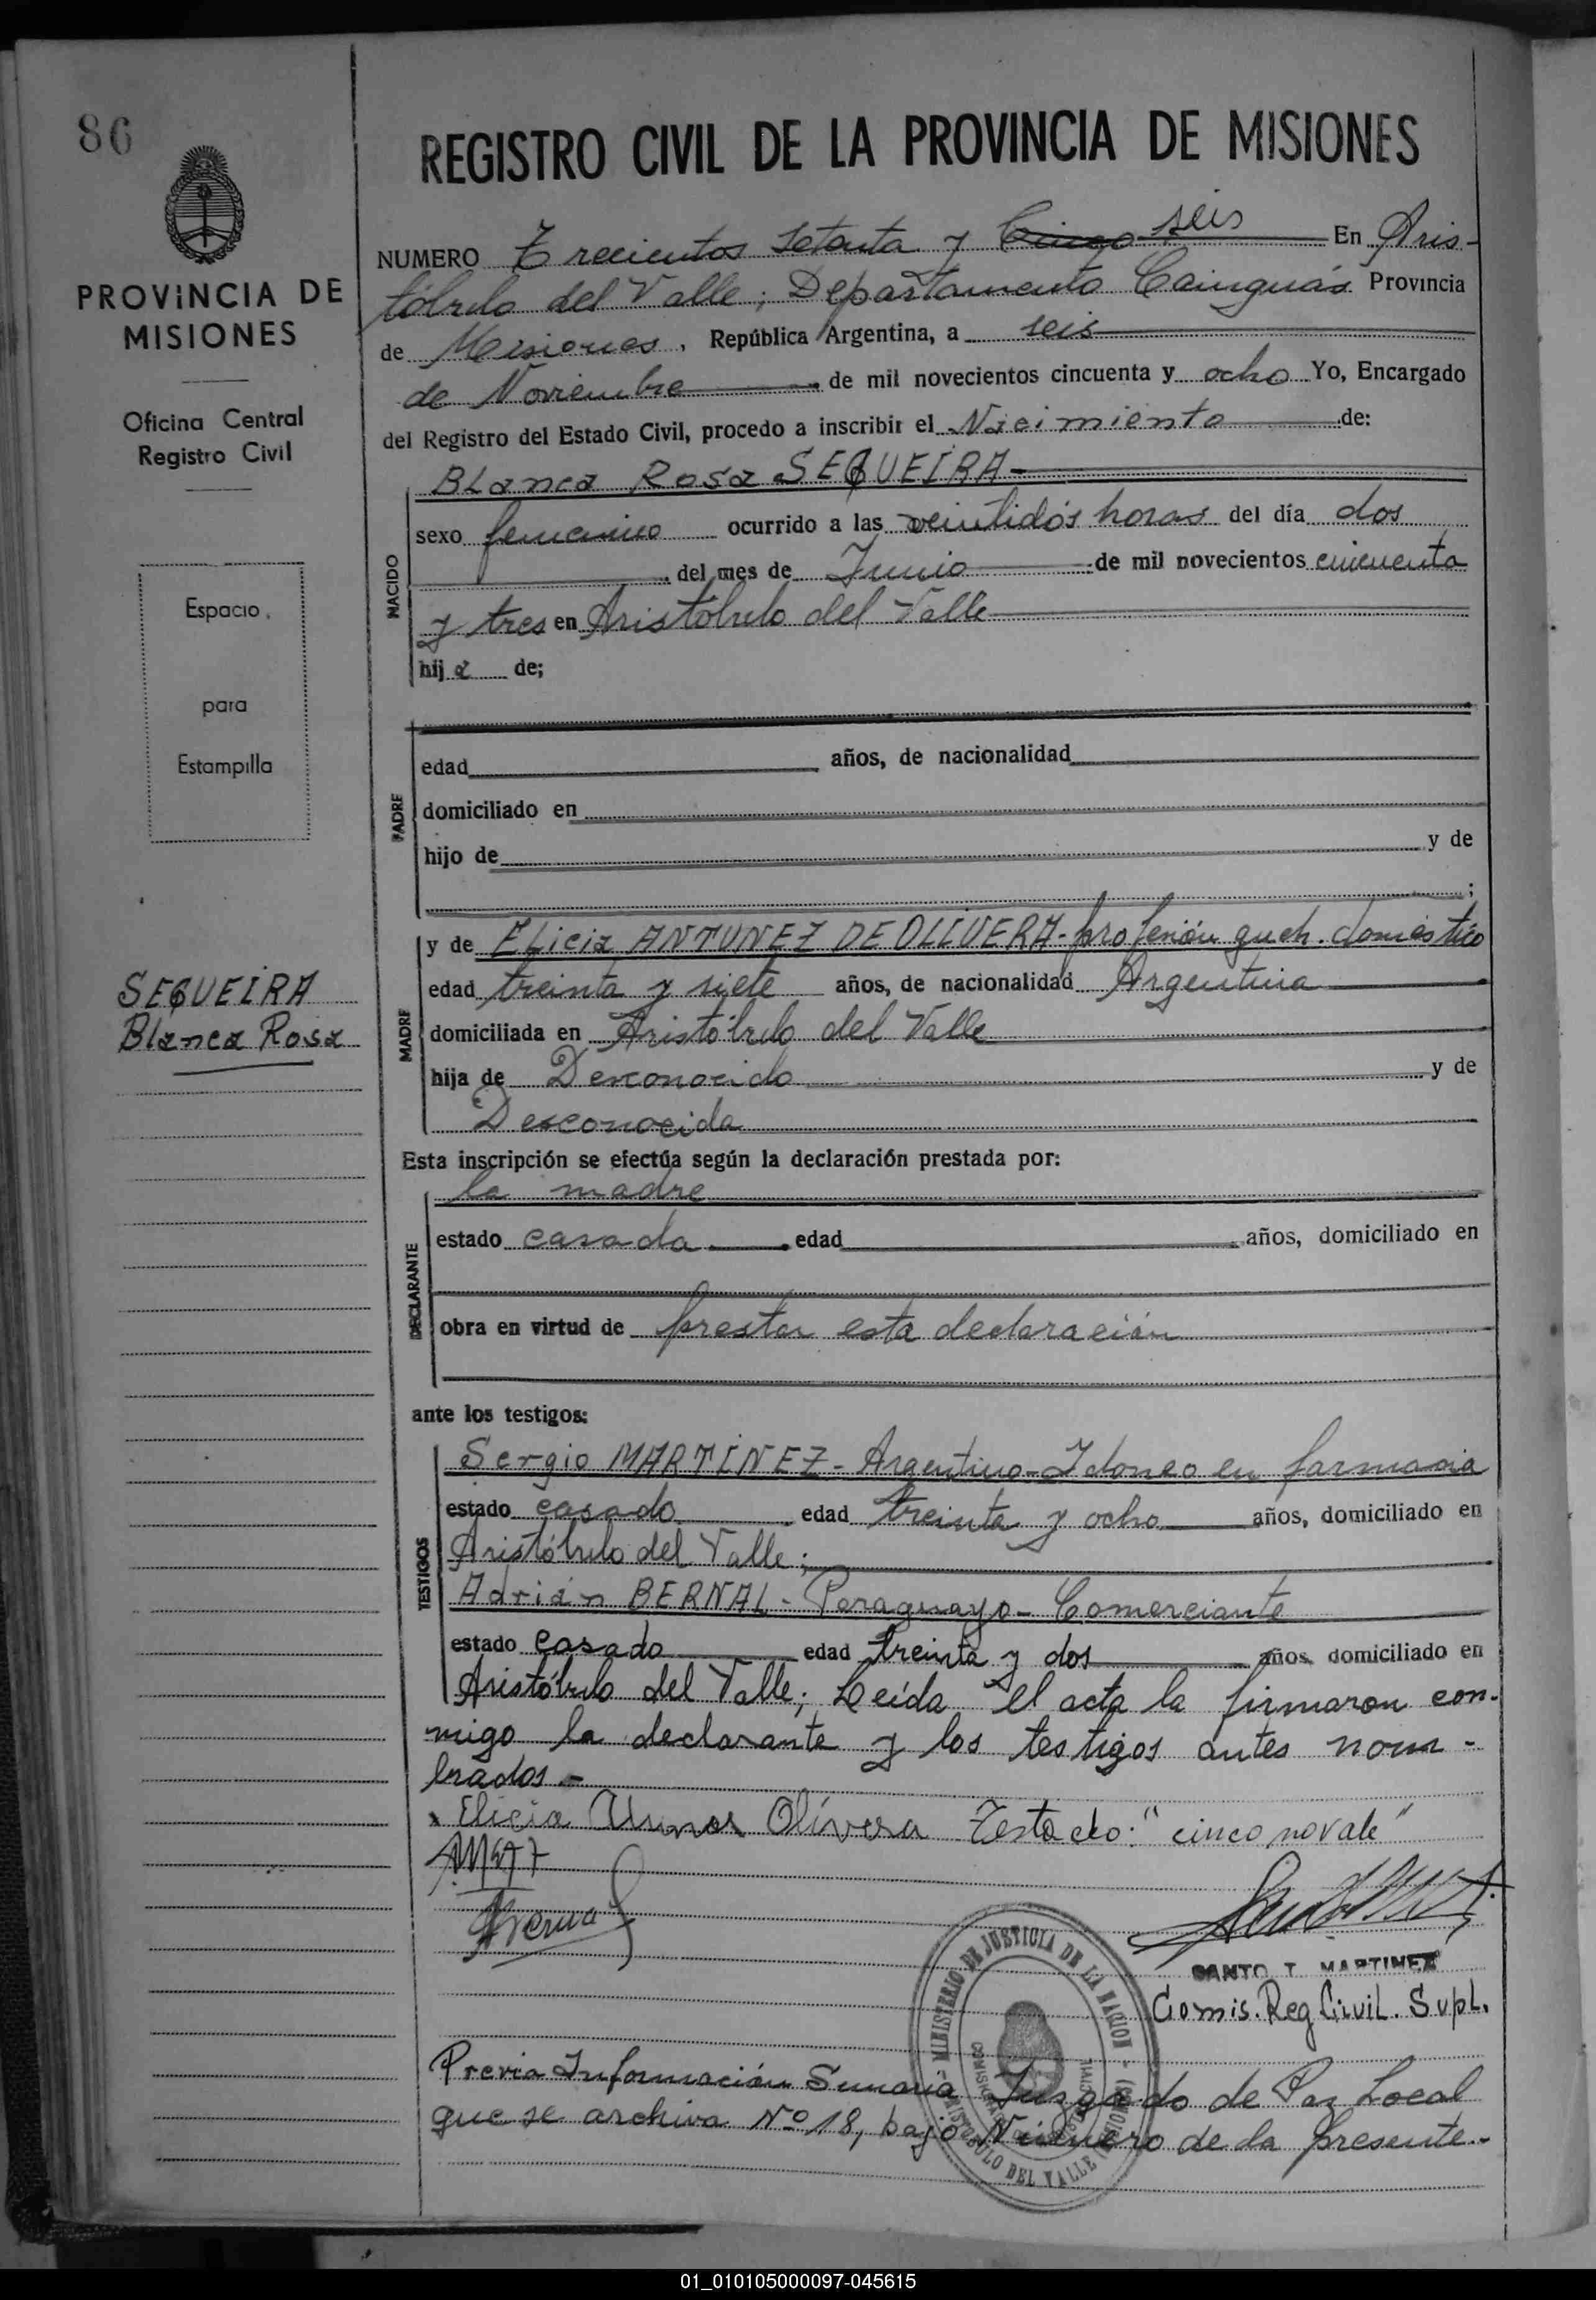 86
REGISTRO CIVIL DE LA PROVINCIA DE MISIONES
PROVINCIA DE
MISIONES
Oficina Central
Registro Civil
Espacio
para
Estampilla
SEQUEIRA
Blanca Rosa
NUMERO Trecientos Setenta y Cinco seis En Aris-
tóbulo del Valle; Departamento Cainguás Provincia
de Misiones, República Argentina, a seis
de Noviembre de mil novecientos cincuenta y ocho Yo, Encargado
del Registro del Estado Civil, procedo a inscribir el Nacimiento de:
NACIDO
Blanca Rosa SEQUEIRA-
sexo femenino ocurrido a las veintidós horas del día dos
del mes de Junio de mil novecientos cincuenta
y tres en Aristóbulo del Valle
hija de;
PADRE
edad años, de nacionalidad
domiciliado en
hijo de y de
;
MADRE
y de Elicia ANTUNEZ DE OLIVERA-profesión queh. doméstico
edad treinta y siete años, de nacionalidad Argentina
domiciliada en Aristóbulo del Valle
hija de Desconocido y de
Desconocida
Esta inscripción se efectúa según la declaración prestada por:
DECLARANTE
la madre
estado casada edad años, domiciliado en
obra en virtud de prestar esta declaración
ante los testigos:
TESTIGOS
Sergio MARTÍNEZ- Argentino-Idoneo en farmacia
estado casado edad treinta y ocho años, domiciliado en
Aristóbulo del Valle;
Adrián BERNAL- Paraguayo- Comerciante
estado casado edad treinta y dos años, domiciliado en
Aristóbulo del Valle; Leída el acta la firmaron con-
migo la declarante y los testigos antes nom-
brados.-
Elicia Olivera Testado: "cinco no vale"
SANTO T. MARTINEZ
Comis. Reg Civil. Supl.
MINISTERIO DE JUSTICIA DE LA NACION
ARISTOBULO DEL VALLE (MISIONES)
Previa Información Sumaria Juzgado de Paz Local
que se archiva Nº 18, bajo Número de la presente.-
01_010105000097-045615